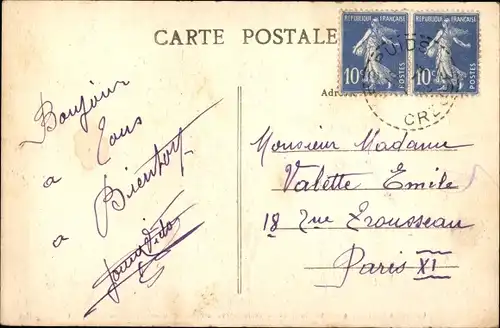 CARTE POSTALE
REPUBLIQUE FRANÇAISE
10c
POSTES
REPUBLIQUE FRANÇAISE
10c
POSTES
Adresse
Bonjour
a Tous
a Bientôt
Monsieur Madame
Valette Emile
18 Rue Trousseau
Paris XI